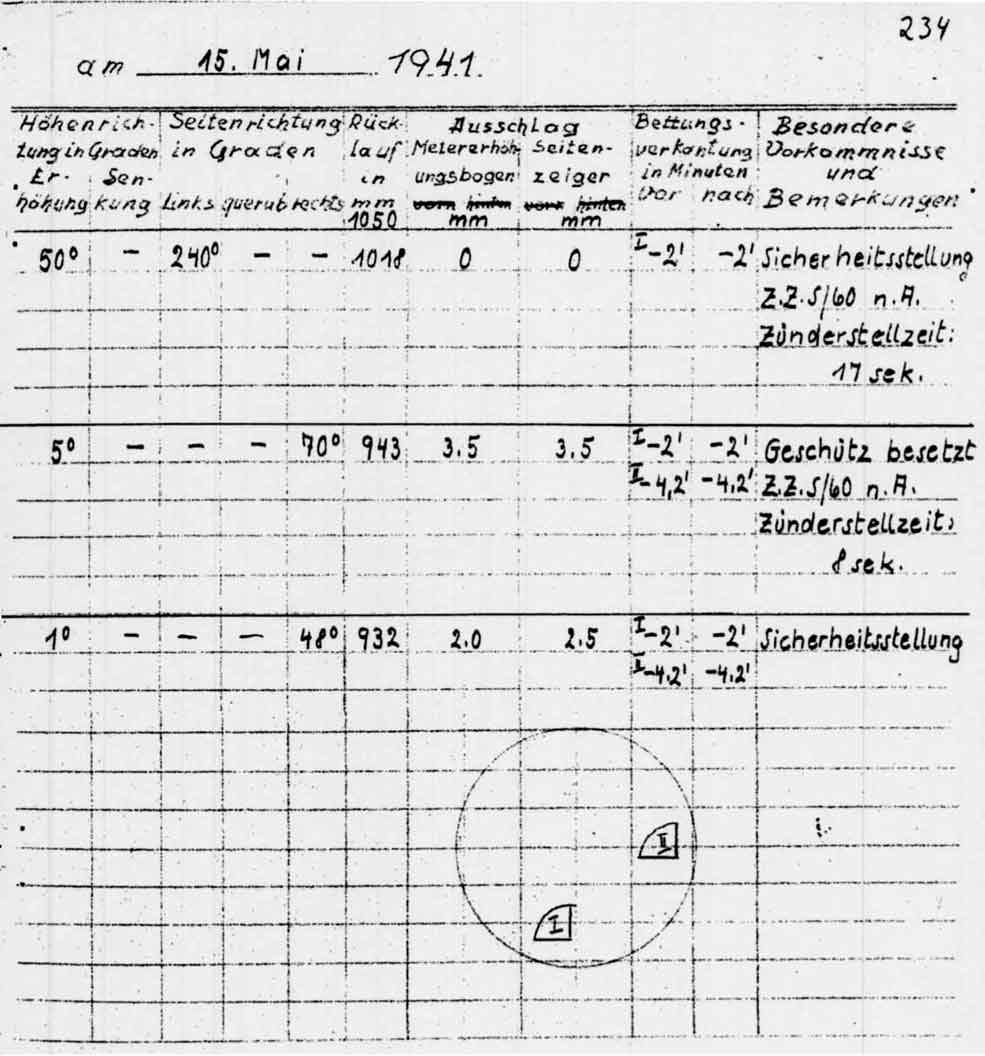 234
am 15. Mai 1941.
Höhenrich- Seitenrichtung Rück- Ausschlag Bettungs- Besondere
tung in Graden in Graden lauf Metererhöh- Seiten- verkantung Vorkommnisse
Er- Sen- in ungsbogen zeiger in Minuten und
höhung kung Links querab rechts mm vorn hinten vorn hinten vor nach Bemerkungen
1050 mm mm
50° – 240° – – 1018 0 0 I -2' -2' Sicherheitsstellung
Z.Z.S/60 n.A.
Zünderstellzeit:
17 sek.
5° – – – 70° 943 3.5 3.5 I -2' -2' Geschütz besetzt
II -4,2' -4,2' Z.Z.S/60 n.A.
Zünderstellzeit:
8 sek.
1° – – – 48° 932 2.0 2.5 I -2' -2' Sicherheitsstellung
II -4.2' -4.2'
II
I